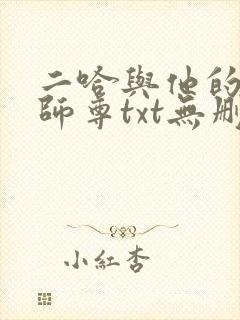 二哈與他的
師尊txt無刪
小紅杏